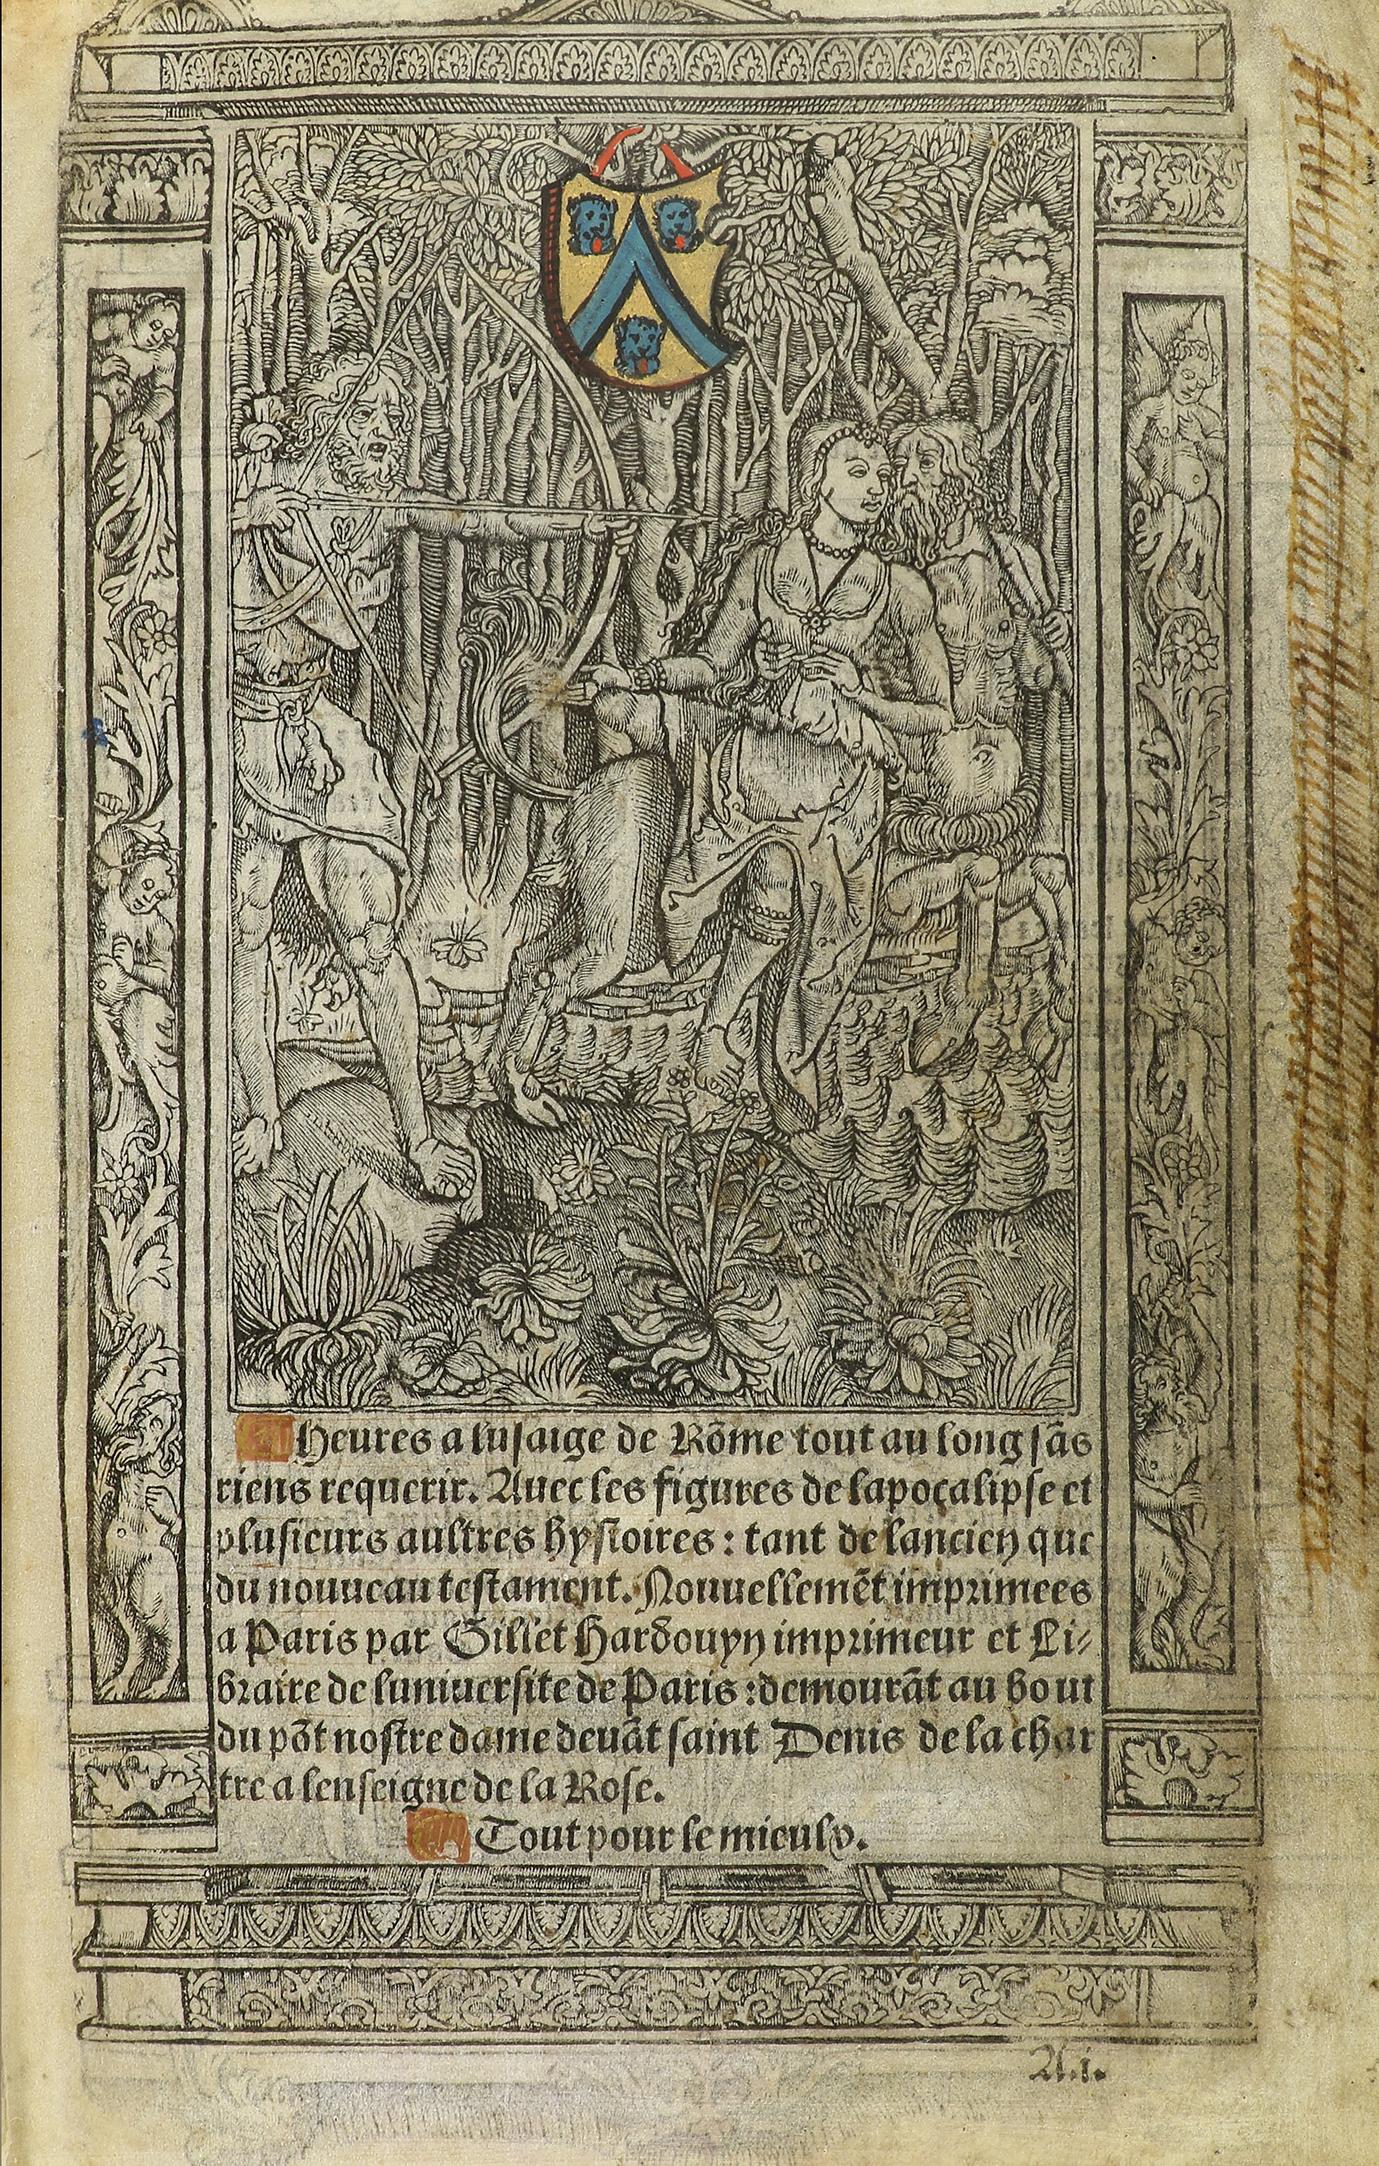 Heures a lusaige de Rõme tout au long sãs
riens requerir. Auec les figures de lapocalipse et
plusieurs aultres hystoires : tant de lancien que
du nouueau testament. Nouuellemẽt imprimees
a Paris par Gillet Hardouyn imprimeur et Li⸗
braire de luniuersite de Paris : demourãt au bout
du põt nostre dame deuãt saint Denis de la char
tre a lenseigne de la Rose.
Tout pour le mieulx.
A.i.